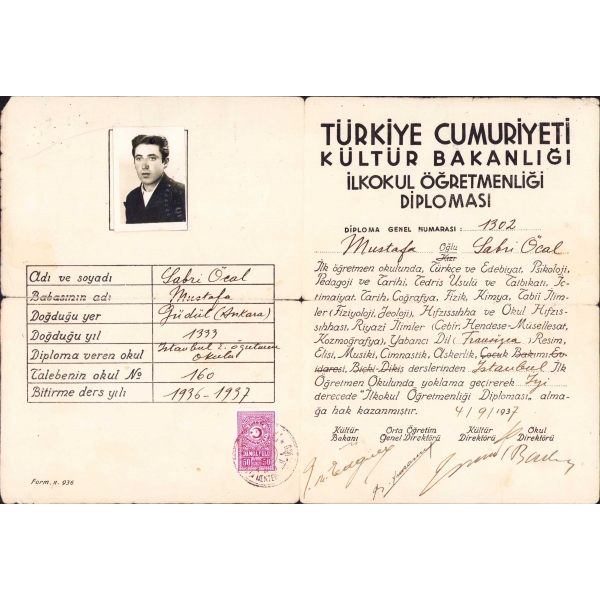 Adı ve soyadı Sabri Öcal
Babasının adı Mustafa
Doğduğu yer Güdül (Ankara)
Doğduğu yıl 1333
Diploma veren okul İstanbul I. öğretmen okulu
Talebenin okul № 160
Bitirme ders yılı 1936-1937
50 DAMGA PULU 50
Form. n. 936
TÜRKİYE CUMURİYETİ
KÜLTÜR BAKANLIĞI
İLKOKUL ÖĞRETMENLİĞİ
DİPLOMASI
DİPLOMA GENEL NUMARASI: 1302
Mustafa Oğlu Kızı Sabri Öcal
İlk öğretmen okulunda, Türkçe ve Edebiyat, Psikoloji,
Pedagoji ve Tarihi, Tedris Usulü ve Tatbikatı, İç-
timaiyat, Tarih, Coğrafya, Fizik, Kimya, Tabii İlim-
ler (Fiziyoloji, Jeoloji), Hıfzıssıhha ve Okul Hıfzıs-
sıhhası, Riyazi İlimler (Cebir, Hendese-Müsellesat,
Kozmografya), Yabancı Dil (Fransızca), Resim,
Elişi, Musiki, Cimnastik, Askerlik, Çocuk Bakımı, Ev
idaresi, Biçki-Dikiş derslerinden İstanbul İlk
Öğretmen Okulunda yoklama geçirerek İyi
derecede "İlkokul Öğretmenliği Diploması" alma-
ğa hak kazanmıştır. 4/9/1937
Kültür Bakanı
Orta Öğretim Genel Direktörü
Kültür Direktörü
Okul Direktörü